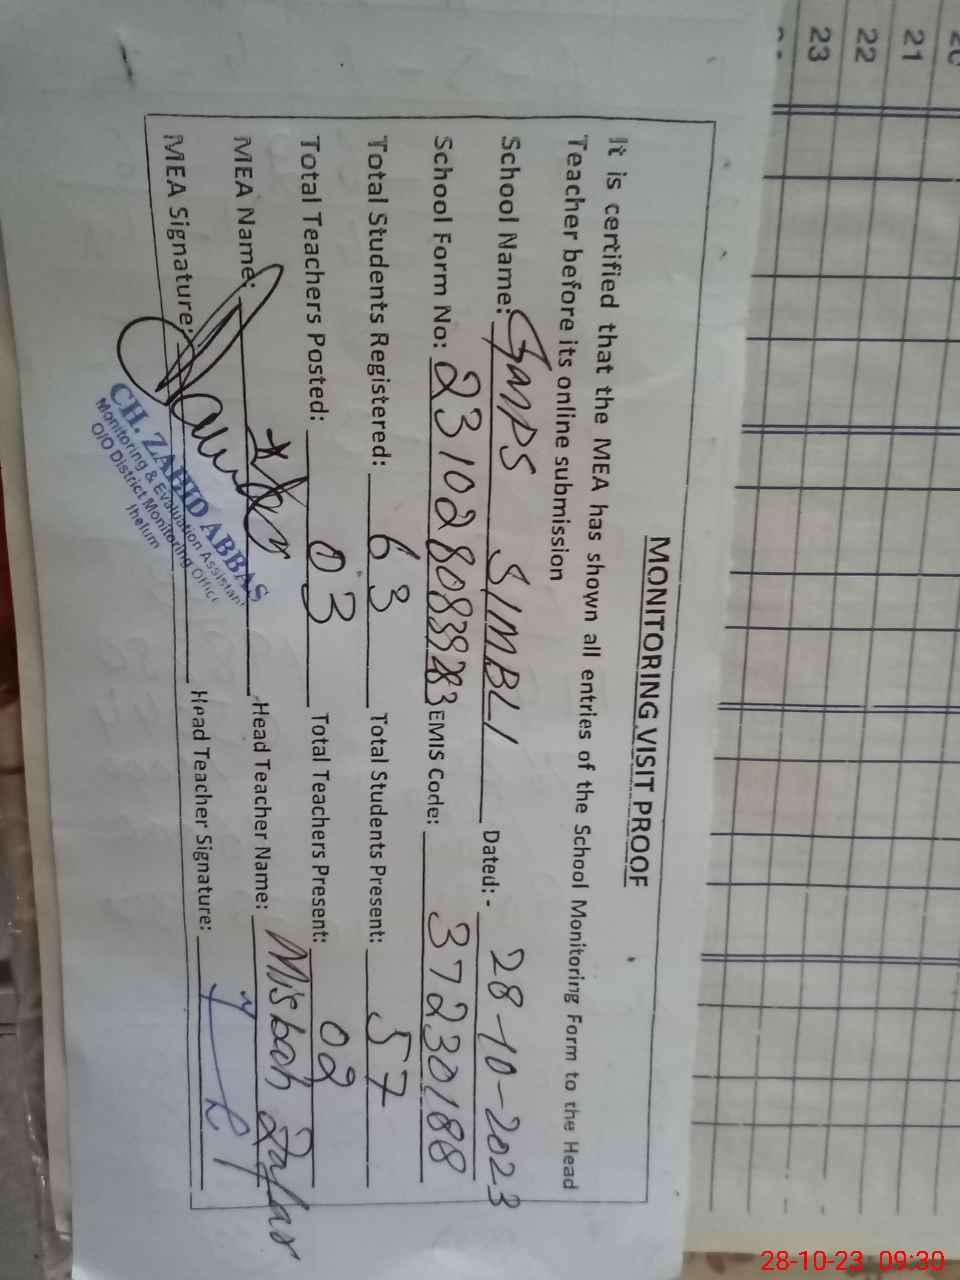 MONITORING VISIT PROOF
It is certified that the MEA has shown all entries of the School Monitoring Form to the Head
Teacher before its online submission
School Name: GMPS SIMBLI Dated:- 28-10-2023
School Form No: EMIS Code: 37230188
Total Students Registered: 63 Total Students Present: 57
Total Teachers Posted: 03 Total Teachers Present: 02
MEA Name: Head Teacher Name: Misbah Zafar
MEA Signature: Head Teacher Signature:
CH. ZAHID ABBAS
Monitoring & Evaluation Assistant
O/O District Monitoring Office
Jhelum
21
22
23
28-10-23 09:30